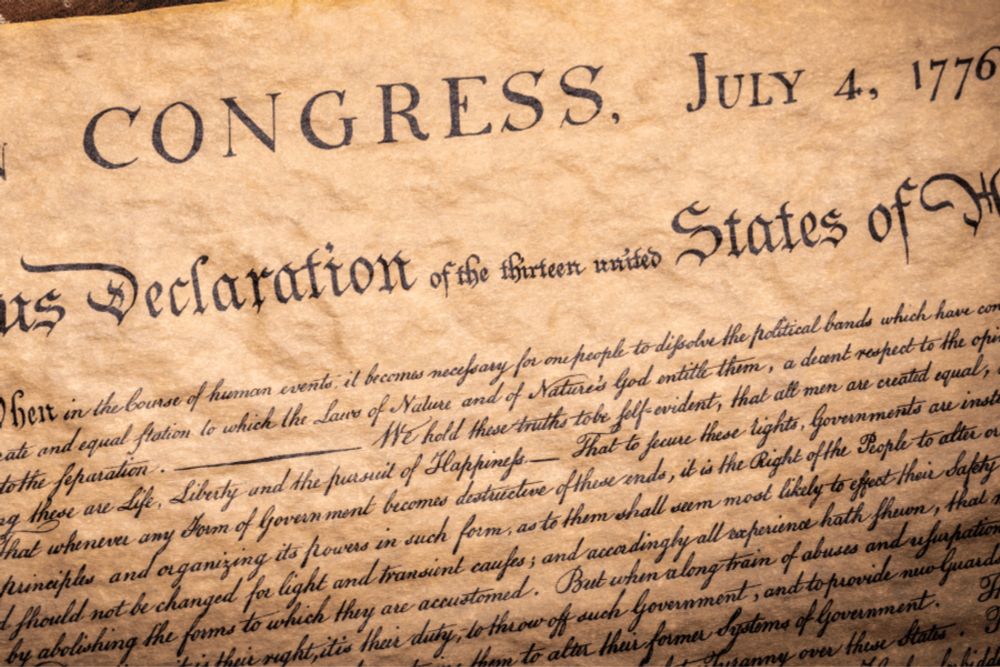 CONGRESS, JULY 4, 1776
us Declaration of the thirteen united States of
When in the Course of human events, it becomes neceſsary for one people to diſsolve the political bands which have
and equal ſtation to which the Laws of Nature and of Nature's God entitle them, a decent respect to the
to the ſeparation. — We hold these truths to be ſelf-evident, that all men are created equal,
these are Life, Liberty and the pursuit of Happineſs — That to ſecure these rights, Governments are
That whenever any Form of Government becomes destructive of these ends, it is the Right of the People to alter or
principles and organizing its powers in such form, as to them shall seem most likely to effect their Safety
should not be changed for light and transient cauſes; and accordingly all experience hath ſhewn, that
by abolishing the forms to which they are accustomed. But when a long train of abuses and uſurpation
it is their right, it is their duty, to throw off such Government, and to provide new Guards
them to alter their former Systems of Government.
Tyranny over these States.